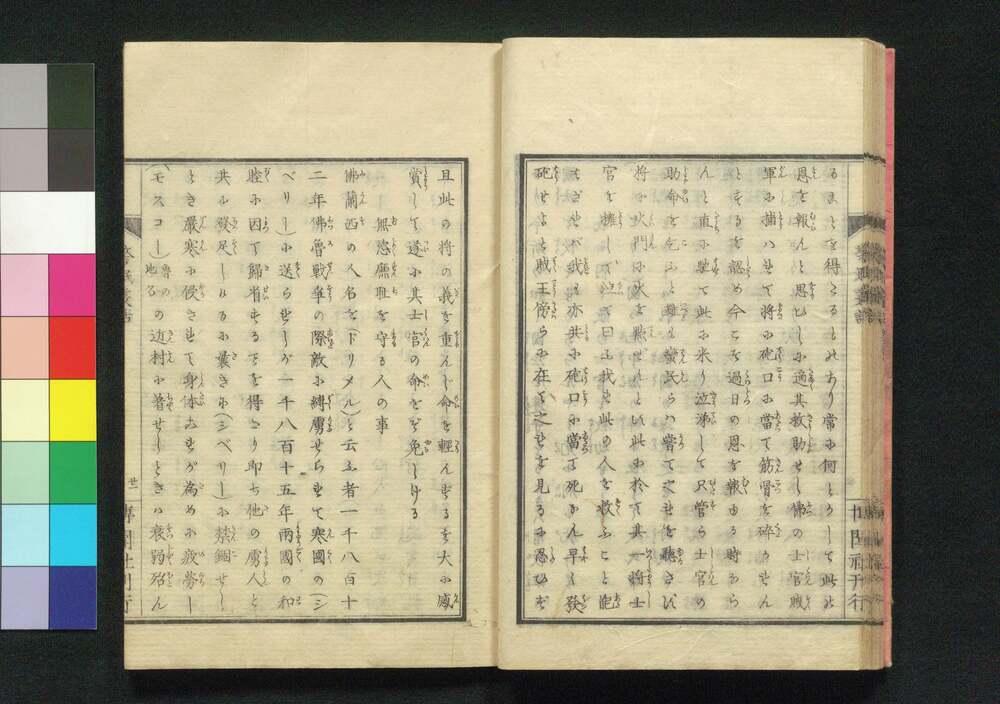 るまとを得たるものあり常に何とかして此の
恩を報んと思ひしに適其救助せし佛の士官賊
軍に捕ハせて将に砲口に當て筋骨を碎かせん
とするを認め今こそ過日の恩を報ゆる時なら
んと直に馳て此に来り泣涕して只管ら士官の
助命を乞ふと雖も蠻民らハ嘗て之を聴き
将に火門に火を點せんとい此に於て其一将士
官を擁して曰く我せ此の人を救ふこと能
我も亦共に砲口に當て死なん早く發
砲せよと賊王傍らに在て之を見るに忍ひす
且此の将の義を重んし命を輕んするを大に感
賞して遂に其士官の命をを免しける
無慾廉耻を守る人の事
佛蘭西の人名を(ドリメル)と云ふ者一千八百十
二年佛魯戦争の際敵に縛虜せられて寒國の(シ
ベリー)に送られしが一千八百十五年兩國の和
睦に因て歸省するを得たり即ち他の虜人と
共に發足しけるに曩きに(シベリー)に禁錮せし
とき嚴寒に侵され身体が為めに疲勞し
(モスコー)魯の地名の近村に着せしときハ衰弱殆ん
廿一
開社刊行